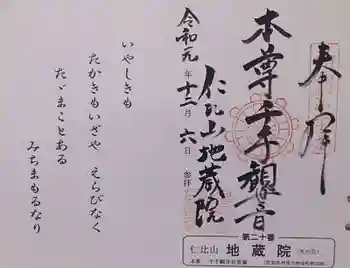 奉拝
本尊千手観音
仁比山地蔵院
令和元年十二月六日
参拝
第二十番
仁比山 地蔵院
本尊 千手観世音菩薩
いやしきも
たかきもいざや えらびなく
たゞまことある
みちまもるなり